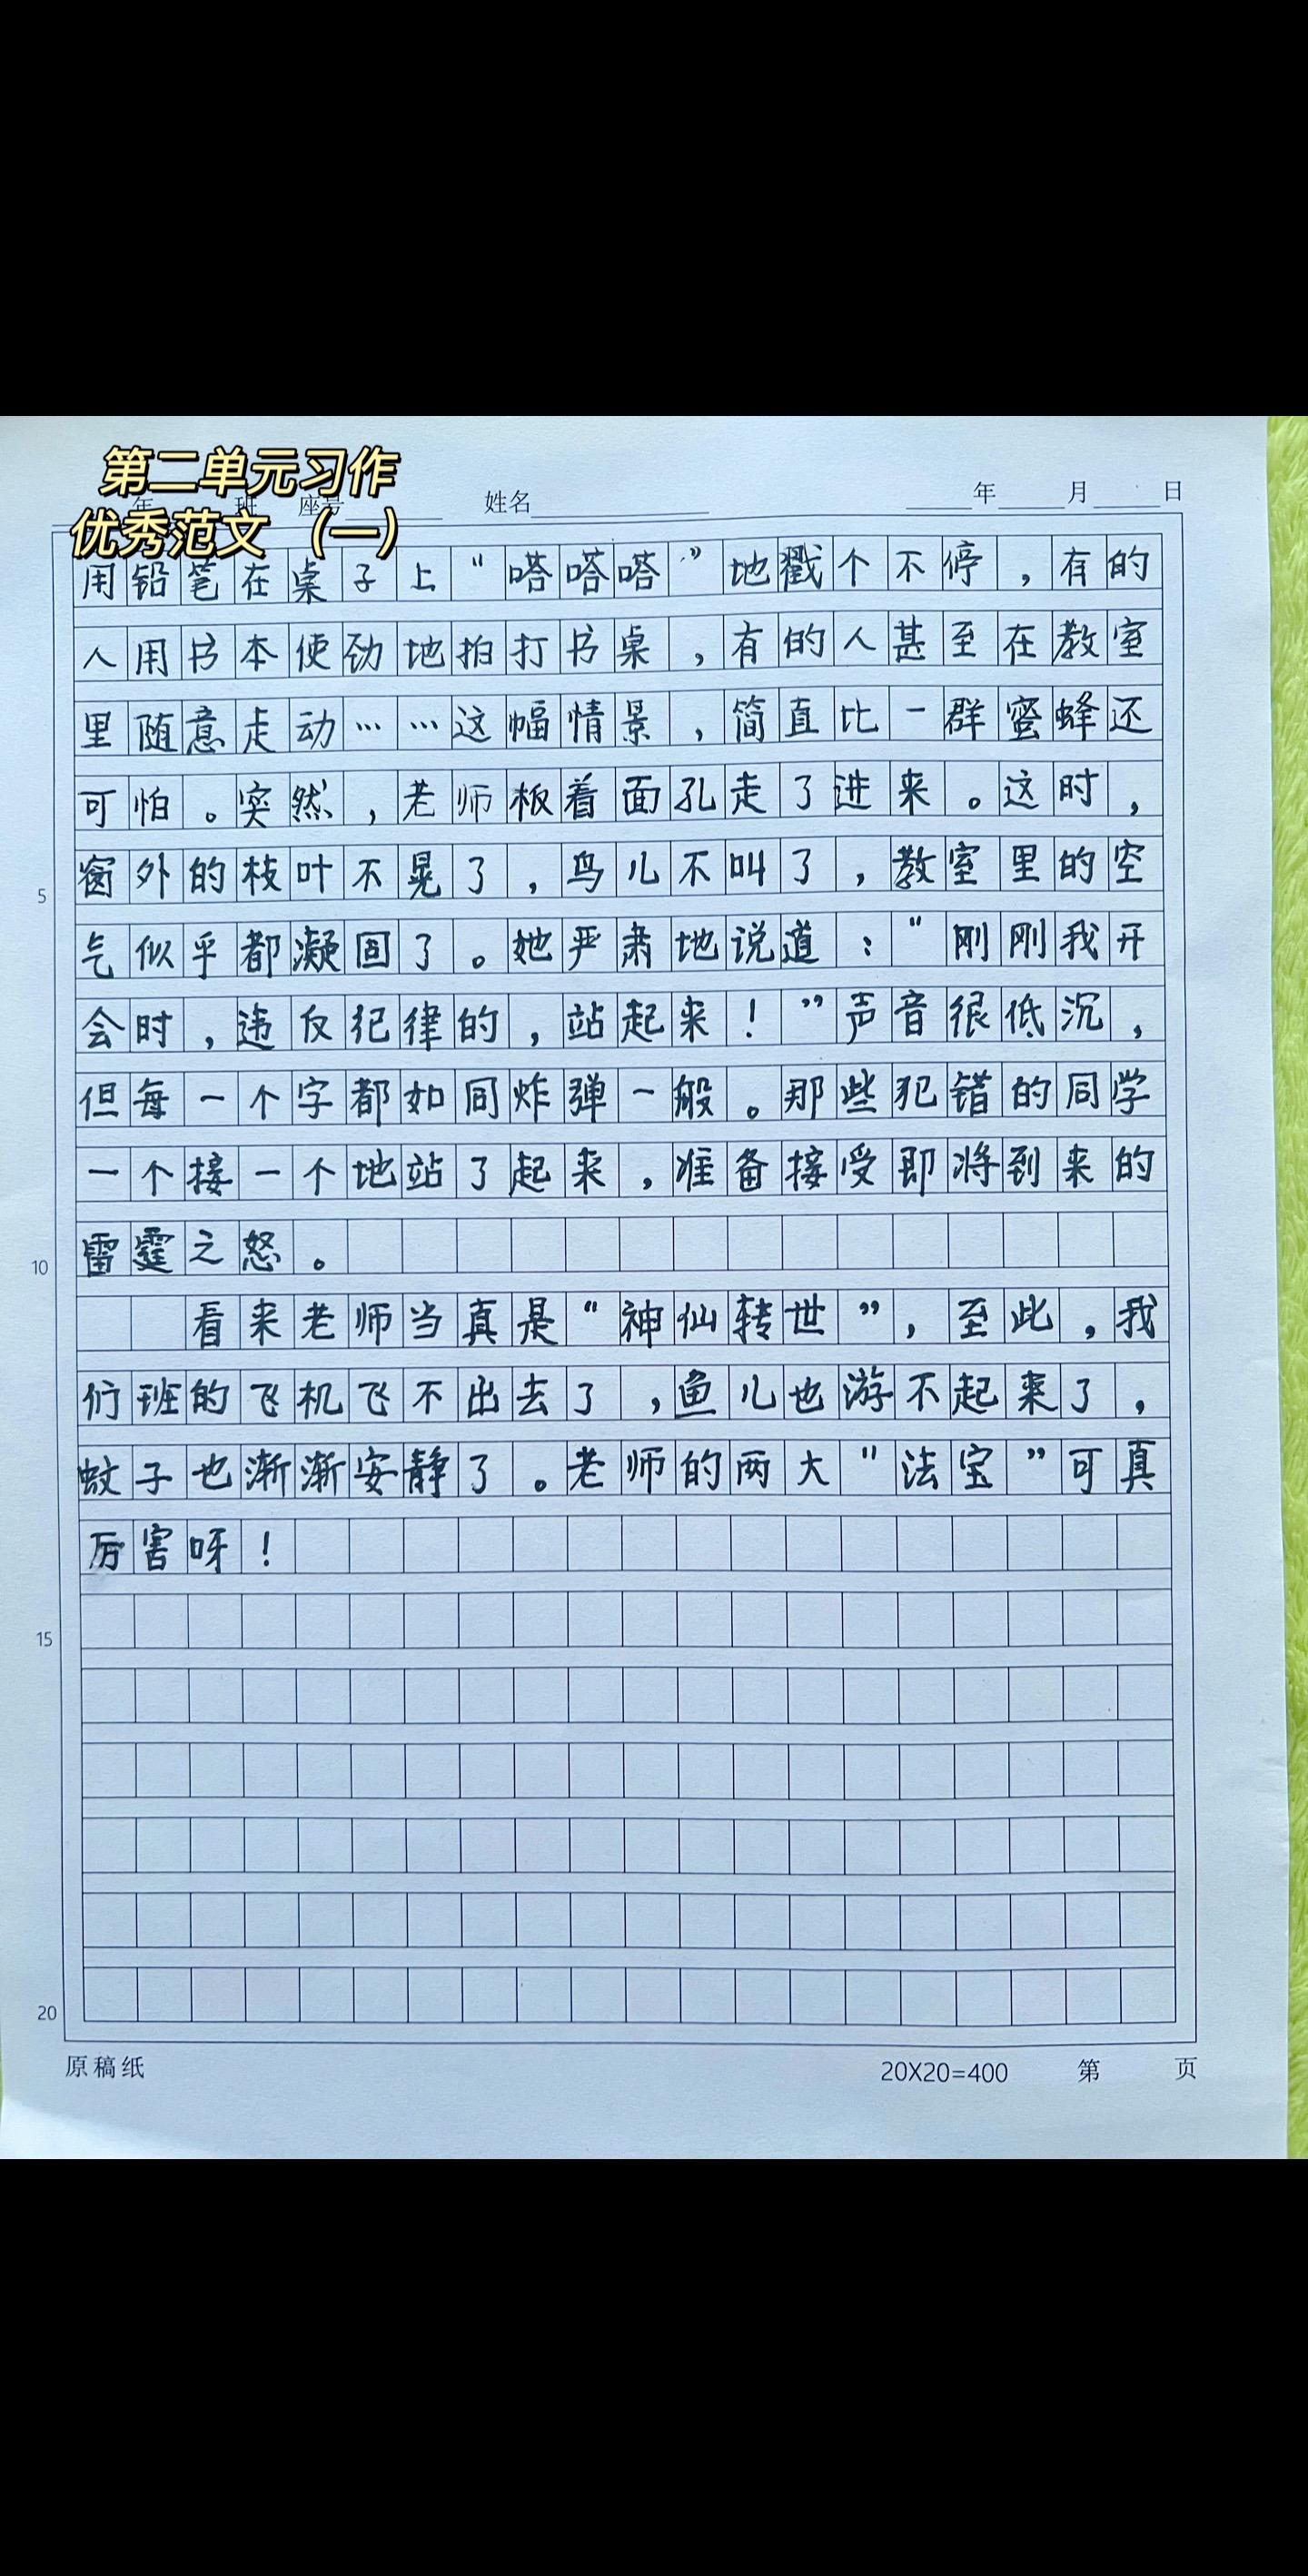 第二单元习作
优秀范文 （一）
年 班 座号 姓名 年 月 日
用铅笔在桌子上“嗒嗒嗒”地戳个不停，有的
人用书本使劲地拍打书桌，有的人甚至在教室
里随意走动……这幅情景，简直比一群蜜蜂还
可怕。突然，老师板着面孔走了进来。这时，
窗外的枝叶不晃了，鸟儿不叫了，教室里的空
气似乎都凝固了。她严肃地说道：“刚刚我开
会时，违反纪律的，站起来！”声音很低沉，
但每一个字都如同炸弹一般。那些犯错的同学
一个接一个地站了起来，准备接受即将到来的
雷霆之怒。
看来老师当真是“神仙转世”，至此，我
们班的飞机飞不出去了，鱼儿也游不起来了，
蚊子也渐渐安静了。老师的两大“法宝”可真
厉害呀！
5
10
15
20
原稿纸 20X20=400 第 页